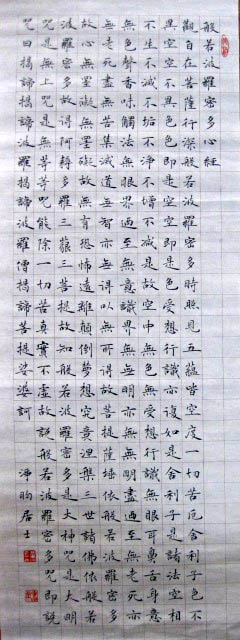 般若波羅密多心經
觀自在菩薩行深般若波羅密多時照見五蘊皆空度一切苦厄舍利子色不
異空空不異色色即是空空即是色受想行識亦復如是舍利子是諸法空相
不生不滅不垢不淨不增不減是故空中無色無受想行識無眼耳鼻舌身意
無色聲香味觸法無眼界迺至無意識界無無明亦無無明盡迺至無老死亦
無老死盡無苦集滅道無智亦無得以無所得故菩提薩埵依般若波羅密多
故心無罣礙無罣礙故無有恐怖遠離顛倒夢想究竟涅槃三世諸佛依般若
波羅密多故得阿耨多羅三藐三菩提故知般若波羅密多是大神咒是大明
咒是無上咒是無等等咒能除一切苦真實不虛故說般若波羅密多咒即說
咒曰揭諦揭諦波羅揭諦波羅僧揭諦菩提娑婆訶 淨昀居士